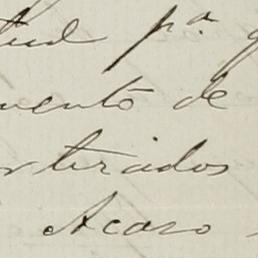 tud p.ª q
mento de
rtirados
Acaso